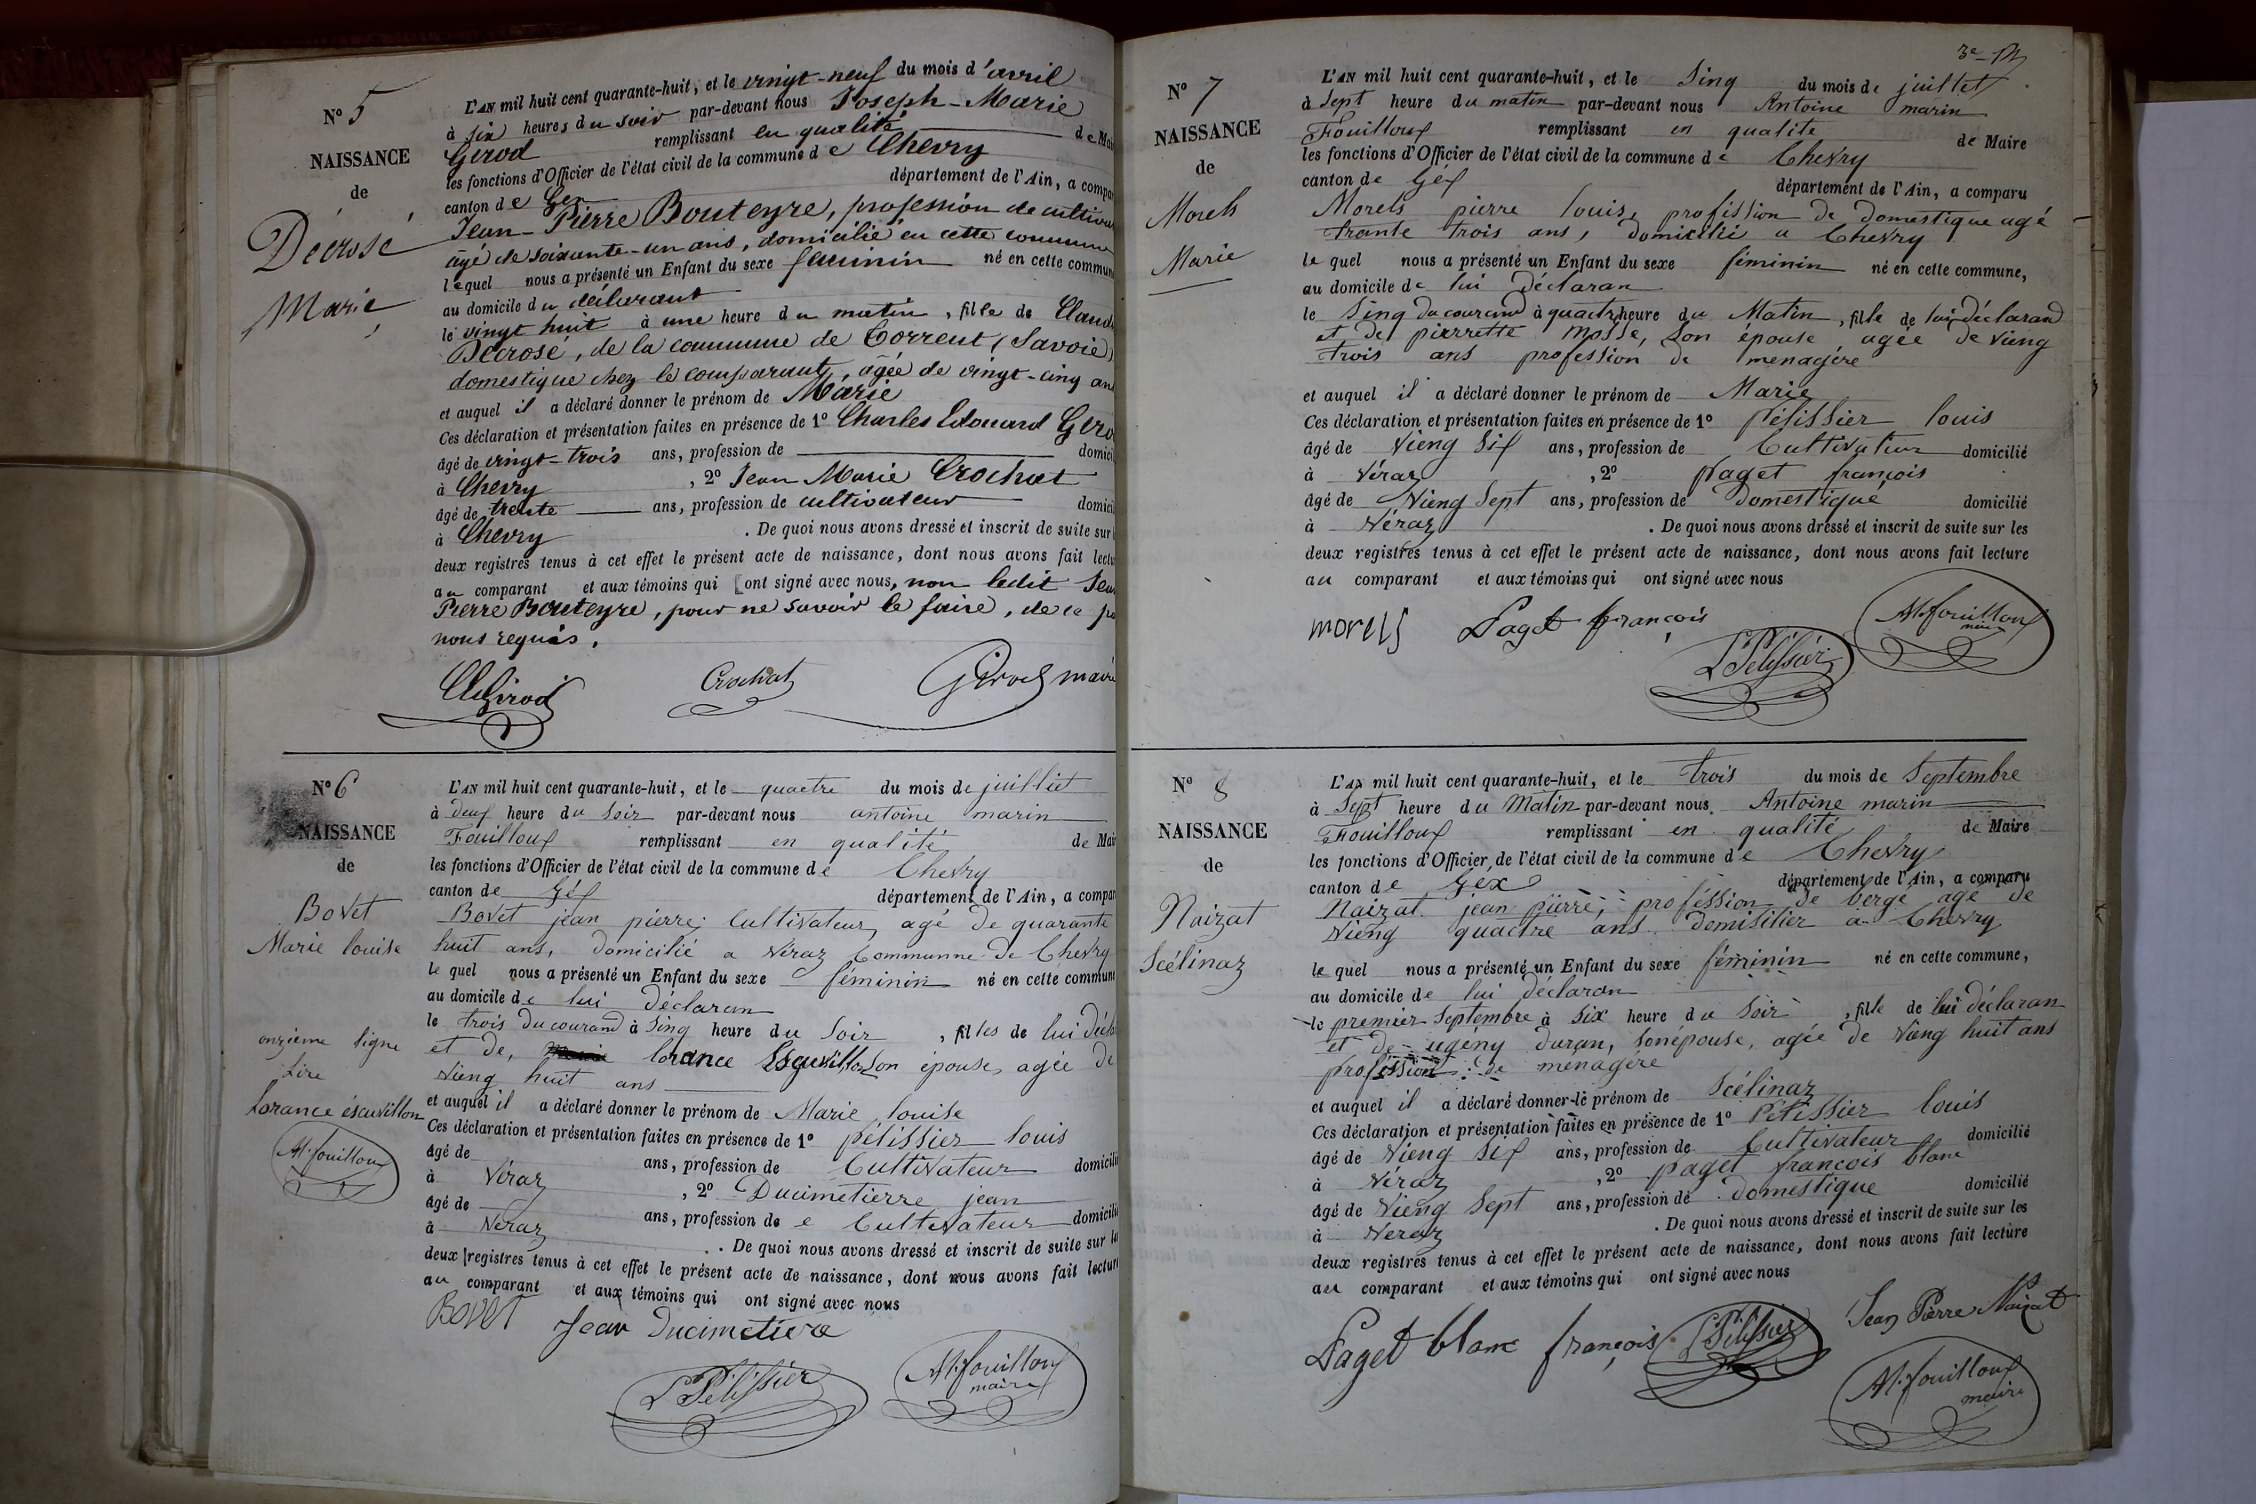 N° 5
NAISSANCE
de
Décrosé
Marie
L'AN mil huit cent quarante-huit, et le vingt-neuf du mois d'avril
à six heures du soir par-devant nous Joseph-Marie
Girod remplissant en qualité de Mai
les fonctions d'Officier de l'état civil de la commune de Chevry
canton de Gex département de l'Ain, a compar
Jean-Pierre Bouteyre, profession de cultivat
agé de soixante-un ans, domicilié en cette commune
lequel nous a présenté un Enfant du sexe féminin né en cette commune
au domicile du déclarant
le vingt huit à une heure du matin, fille de Claud
Décrosé, de la commune de Correut (Savoie)
domestique chez le comparant, âgée de vingt-cinq ans
et auquel il a déclaré donner le prénom de Marie
Ces déclaration et présentation faites en présence de 1° Charles Edouard Giro
âgé de vingt-trois ans, profession de domicil
à Chevry, 2° Jean Marie Crochat
âgé de trente ans, profession de cultivateur domicil
à Chevry. De quoi nous avons dressé et inscrit de suite sur
deux registres tenus à cet effet le présent acte de naissance, dont nous avons fait lectu
au comparant et aux témoins qui ont signé avec nous, non ledit Jean
Pierre Bouteyre, pour ne savoir le faire, de ce
nous requis.
Girod Crochat Girod maire
N° 6
NAISSANCE
de
Bovet
Marie louise
onzième ligne
Lire
Lorance éscuvillon
At. fouilloux
L'AN mil huit cent quarante-huit, et le quactre du mois de juilliet
à deuf heure du soir par-devant nous antoine marin
Fouilloux remplissant en qualité de Mair
les fonctions d'Officier de l'état civil de la commune de Chevry
canton de Géx département de l'Ain, a compar
Bovet jean pierre, Cultivateur, agé de quarante
huit ans, domicilié a Véraz Communne De Chevry
le quel nous a présenté un Enfant du sexe féminin né en cette commune
au domicile de lui Déclaran
le trois du courand à sinq heure du Soir, filles de lui Décla
et de, lorance Son épouse, agée de
Vieng huit ans
et auquel il a déclaré donner le prénom de Marie louise
Ces déclaration et présentation faites en présence de 1° pélissier louis
âgé de ans, profession de Cultivateur domicilié
à Véraz, 2° Ducimetierre jean
âgé de ans, profession de e Cultivateur domicilié
à Veraz. De quoi nous avons dressé et inscrit de suite sur
deux registres tenus à cet effet le présent acte de naissance, dont nous avons fait lecture
au comparant et aux témoins qui ont signé avec nous
Bovet Jean Ducimetiere
L Pélissier At. fouilloux maire
3e
N° 7
NAISSANCE
de
Morels
Marie
L'AN mil huit cent quarante-huit, et le Sinq du mois de juillet
à Sept heure du matin par-devant nous Antoine marin
Fouilloux remplissant en qualité de Maire
les fonctions d'Officier de l'état civil de la commune de Chevry
canton de Géx département de l'Ain, a comparu
Morels pierre louis, profission De domestique agé
trante trois ans, Domicilié a Chevry
le quel nous a présenté un Enfant du sexe féminin né en cette commune,
au domicile de lui Déclaran
le Sinq du courand à quactre heure du Matin, fille de lui déclarand
et de pierrette Mosse, Son épouse agée de Vieng
trois ans profession de menagére
et auquel il a déclaré donner le prénom de Marie
Ces déclaration et présentation faites en présence de 1° Pélissier louis
âgé de Vieng Six ans, profession de Cultivateur domicilié
à Véraz, 2° paget françois
âgé de Vieng Sept ans, profession de Domestique domicilié
à Véraz. De quoi nous avons dressé et inscrit de suite sur les
deux registres tenus à cet effet le présent acte de naissance, dont nous avons fait lecture
au comparant et aux témoins qui ont signé avec nous
morels Paget françois At. fouilloux maire
L Pélissier
N° 8
NAISSANCE
de
Naizat
Scélinaz
L'AN mil huit cent quarante-huit, et le trois du mois de Septembre
à Sept heure du Matin par-devant nous Antoine marin
Fouilloux remplissant en qualité de Maire
les fonctions d'Officier de l'état civil de la commune de Chevry
canton de Géx département de l'Ain, a comparu
Naizat jean piérre, proféssion de bergé agé de
Vieng quactre ans Demisilier a Chevry
le quel nous a présenté un Enfant du sexe féminin né en cette commune,
au domicile de lui déclaran
le premier Septembre à six heure du Soir, fille de lui déclaran
et de ugény duran, Son épouse, agée de Vieng huit ans
proféssion de menagére
et auquel il a déclaré donner le prénom de Scélinaz
Ces déclaration et présentation faites en présence de 1° Pélissier louis
âgé de Vieng Six ans, profession de Cultivateur domicilié
à Véraz, 2° paget françois blanc
âgé de Vieng Sept ans, profession de Domestique domicilié
à Veraz. De quoi nous avons dressé et inscrit de suite sur les
deux registres tenus à cet effet le présent acte de naissance, dont nous avons fait lecture
au comparant et aux témoins qui ont signé avec nous
Paget blanc françois L Pélissier Jean Pierre Naizat
At. fouilloux maire